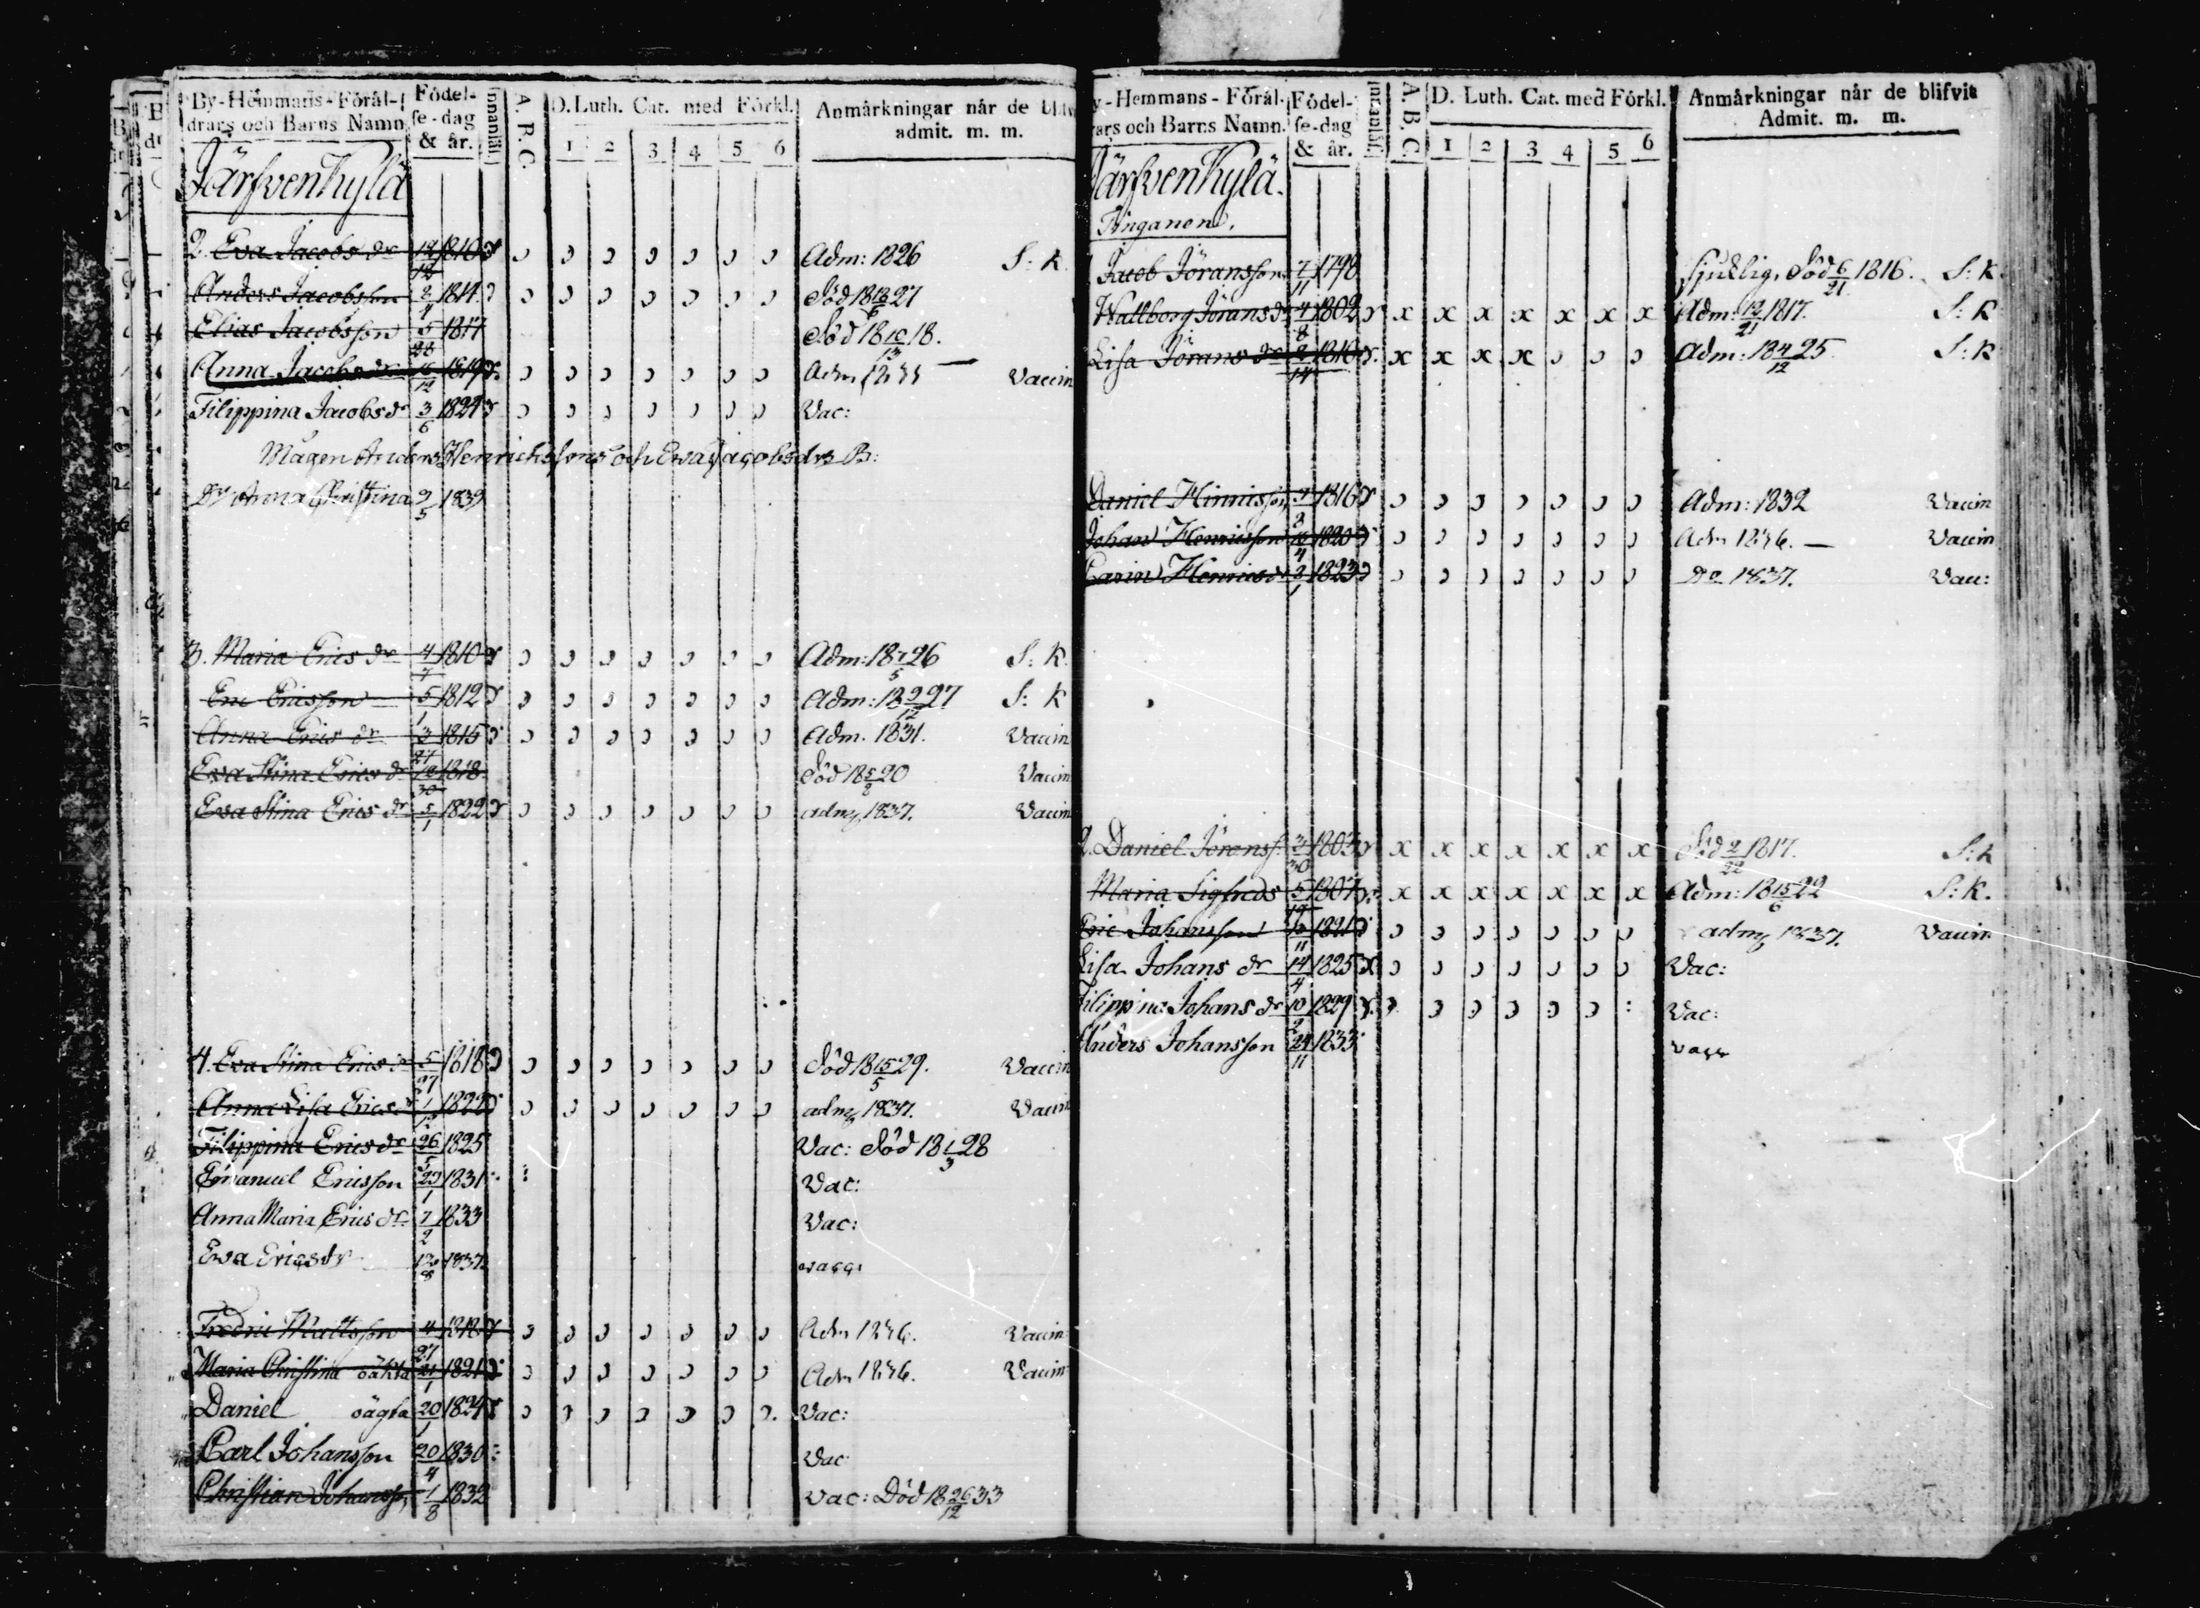 By-Hemmans-Föräl- Födel- Innanläs. A.B.C. D. Luth. Cat. med Förkl. Anmärkningar när de blifv
drars och Barns Namn se-dag admit. m. m.
& år. 1 2 3 4 5 6
Järfvenkylä
2. Eva Jacobs dr 1810 Adm: 1826 S: K.
Anders Jacobsson Död 18 27
Elias Jacobsson 5 1817 Död 18 18.
Anna Jacobs dr 1819 Adm 1835 Vaccin
Filippina Jacobs dr 3/6 1824 Vac:
Mågen Anders Henrichssons och Eva Jacobsdrs B:
Dr Anna Christina 2/5 1839
3. Maria Erics dr 4/7 1810 Adm: 18 7/5 26 S: K.
Eric Ericsson 5/1 1812 Adm: 18 9/12 27 S: K
Anna Erics dr 3 1815 Adm. 1831. Vaccin
Eva Stina Erics dr 1818 Död 18 20 Vaccin
Eva Stina Erics dr 5/1 1822 adm 1837. Vaccin
4. Eva Stina Erics dr 5/27 1818 Död 18 15/5 29. Vaccin
Anna Lisa Erics dr 1822 adm 1837. Vaccin
Filippina Erics dr 26/5 1825 Vac: Död 18 1/3 28
Emanuel Ericsson 29/1 1831 Vac:
Anna Maria Erics dr 7/2 1833 Vac:
Eva Ericsdr 1837 vacc:
Fredric Mattsson 4/27 Adm 1836. Vaccin
Maria Christina oäkta 21/1 1821 Adm 1836. Vaccin
Daniel oägta 20/1 1824 Vac:
Carl Johansson 20/4 1830 Vac:
Christian Johansson 1/8 1832 Vac: Död 18 26/12 33
y-Hemmans-Föräl- Födel- Innanläs. A.B.C. D. Luth. Cat. med Förkl. Anmärkningar når de blifvit
rars och Barns Namn. se-dag Admit. m. m.
& år. 1 2 3 4 5 6
Järfvenkylä.
Jacob Jöransson 7/11 1798 sjuklig, Död 6/21 1816. S: K
Wallborg Jörans dr 4/8 1802 x x x x x x x Adm: 12/21 1817. S: K
Lisa Jörans dr 2/14 1810 x x x x Adm: 18 4/12 25. S: K
Daniel Hinricsson 1816 Adm: 1832 Vaccin
Johan Henricsson 16/4 1820 Adm 1836. — Vaccin
Carin Henrics dr 2/1 1823 Do 1837. Vacc:
2. Daniel Jöranss. 3/30 1803 x x x x x x x Död 2/22 1817. S: K
Maria Sigfreds 5 1807 x x x x x x x Adm: 18 15/6 22 S: K.
Eric Johansson 1821 adm 1837. Vaccin
Lisa Johans dr 14/4 1825 Vac:
Filippina Johans dr 10/2 1829 Vac:
Anders Johansson 24/11 1833 vacc